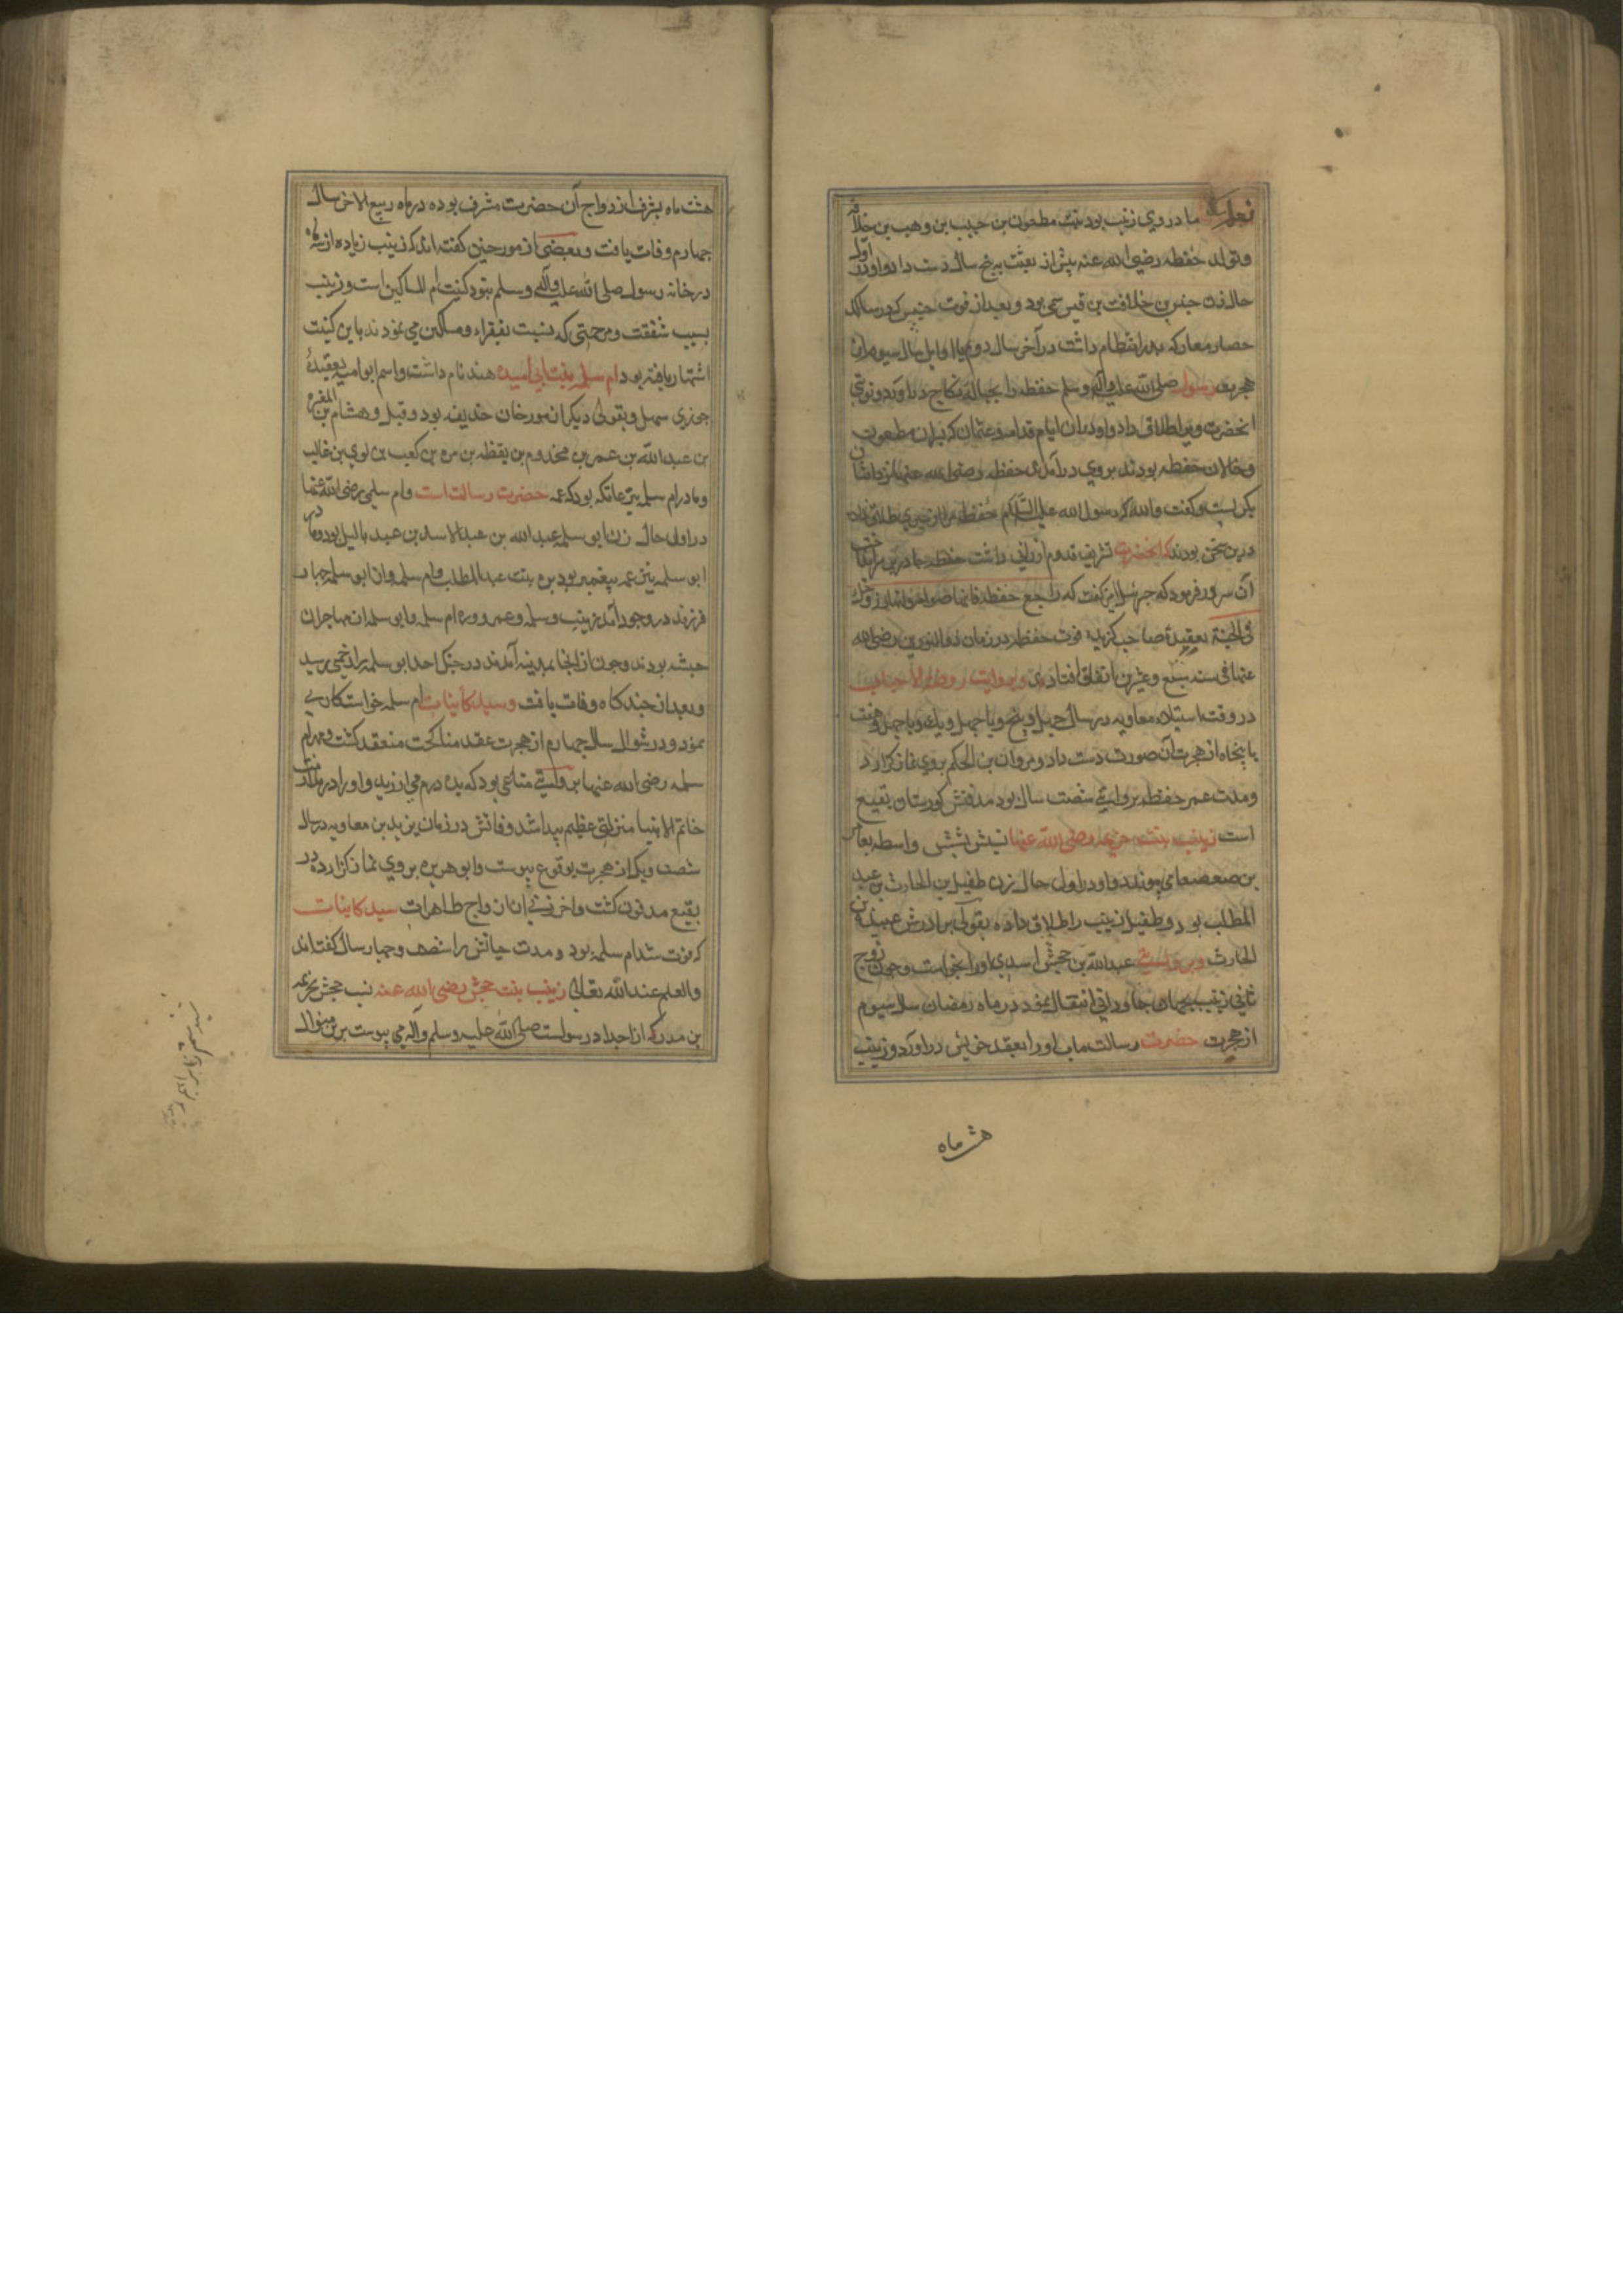 مادر وی زینب بود بنت مطعون بن حبیب بن وهب بن
و تولد حفظه رضی الله عنه پیش از بعثت به پنج سال دست داد و او در اول
حال زن بن قیس سهمی بود و بعد از فوت که در سلک
حضار معارکه بدر انتظام داشت در آخر سال دوم یا اوایل سال سیوم از
هجرت رسول صلی الله علیه وآله وسلم حفظه را بحباله نکاح درآورد و نوبتی
انحضرت ویرا طلاق داد و در ان ایام قدامه و عثمان که پسران مطعون
و خالان حفظه بودند بروی درآمدند حفظه رضی الله عنها
بکریست و کفت والله که رسول الله علیه السلام حفظه را از طلاق نداد
درین سخن بودند که انحضرت تشریف قدوم ارزانی داشت حفظه چادر بر سر
آن سرور فرمود که جبرئیل کفت که راجع حفظه فانها صوامه
فی الجنة بعقیدهٔ صاحب کزیده فوت حفظه در زمان ذوالنورین رضی الله
عنها فی سنه سبع و عشرین اتفاق افتاد و بروایت روضة الاحباب
در وقت استیلاء معاویه در سال چهل و پنج و یا چهل و یک و یا چهل و هفت
یا پنجاه از هجرت آن صورت دست داد و مروان بن الحکم بروی نماز کزارد
و مدت عمر حفظه بروایتی شصت سال بود مدفنش کورستان بقیع
است زینب بنت خزیمه رضی الله عنها نسبش بشش واسطه بعامر
بن صعصعه می پیوندد و او در اول حال زن طفیل بن الحارث بن عبد
المطلب بود و طفیل زینب را طلاق داده بقولی برادرش عبیده بن
الحارث و بروایتی عبدالله بن جحش اسدی اورا بخواست و چون زوج
ثانی زینب بجهان جاودانی انتقال نمود در ماه رمضان سال سیوم
از هجرت حضرت رسالت ماب اورا بعقد خویش درآورد و زینب
هشت ماه
هشت ماه بشرف ازدواج آن حضرت مشرف بوده در ماه ربیع الاخر سال
چهارم وفات یافت و بعضی از مورخین کفته اند که زینب زیاده از سه ماه
در خانه رسول صلی الله علیه وآله وسلم نبود کنیت ام المساکین است و زینب
بسبب شفقت و مرحمتی که نسبت بفقراء و مساکین می نمودند باین کنیت
اشتهار یافته بود ام سلمه بنت ابی امیه هند نام داشت و اسم ابو امیه بعقیدهٔ
جوزی سهیل و بقولی دیکر از مورخان حذیفه بود و قیل و هشام بن المغیره
بن عبدالله بن عمر بن مخدوم بن یقظه بن مره بن کعب بن لوی بن غالب
و مادر ام سلمه نیز عاتکه بود که عمه حضرت رسالت است و ام سلمی رضی الله عنها
در اول حال زن ابو سلمه عبدالله بن عبدالاسد بن عبد یالیل بود و مادر
ابو سلمه نیز عمه پیغمبر بود بره بنت عبدالمطلب و ام سلمه را از ابو سلمه چهار
فرزند در وجود آمد زینب و سلمه و عمر و دره ام سلمه و ابو سلمه از مهاجران
حبشه بودند و چون از انجا بمدینه آمدند در جنک احد ابو سلمه را زخمی رسید
و بعد از چند کاه وفات یافت و سید کاینات ام سلمه خواستکاری
نمود و در شوال سال چهارم از هجرت عقد مناکحت منعقد کشت و مهر ام
سلمه رضی الله عنها بروایتی متاعی بود که بده درم می ارزید و اورا در خدمت
خاتم الانبیا منزلتی عظیم پیدا شد وفاتش در زمان یزید بن معاویه در سال
شصت و یک از هجرت بوقوع پیوست و ابو هریره بروی نماز کزارده در
بقیع مدفون کشت و آخر زنی از ازواج طاهرات سید کاینات
که فوت شد ام سلمه بود و مدت حیاتش را شصت و چهار سال کفته اند
والعلم عند الله تعالی زینب بنت جحش رضی الله عنه نسب جحش بخزیمه
بن مدرکه از اجداد رسولست صلی الله علیه وسلم وآله می پیوست برین منوال